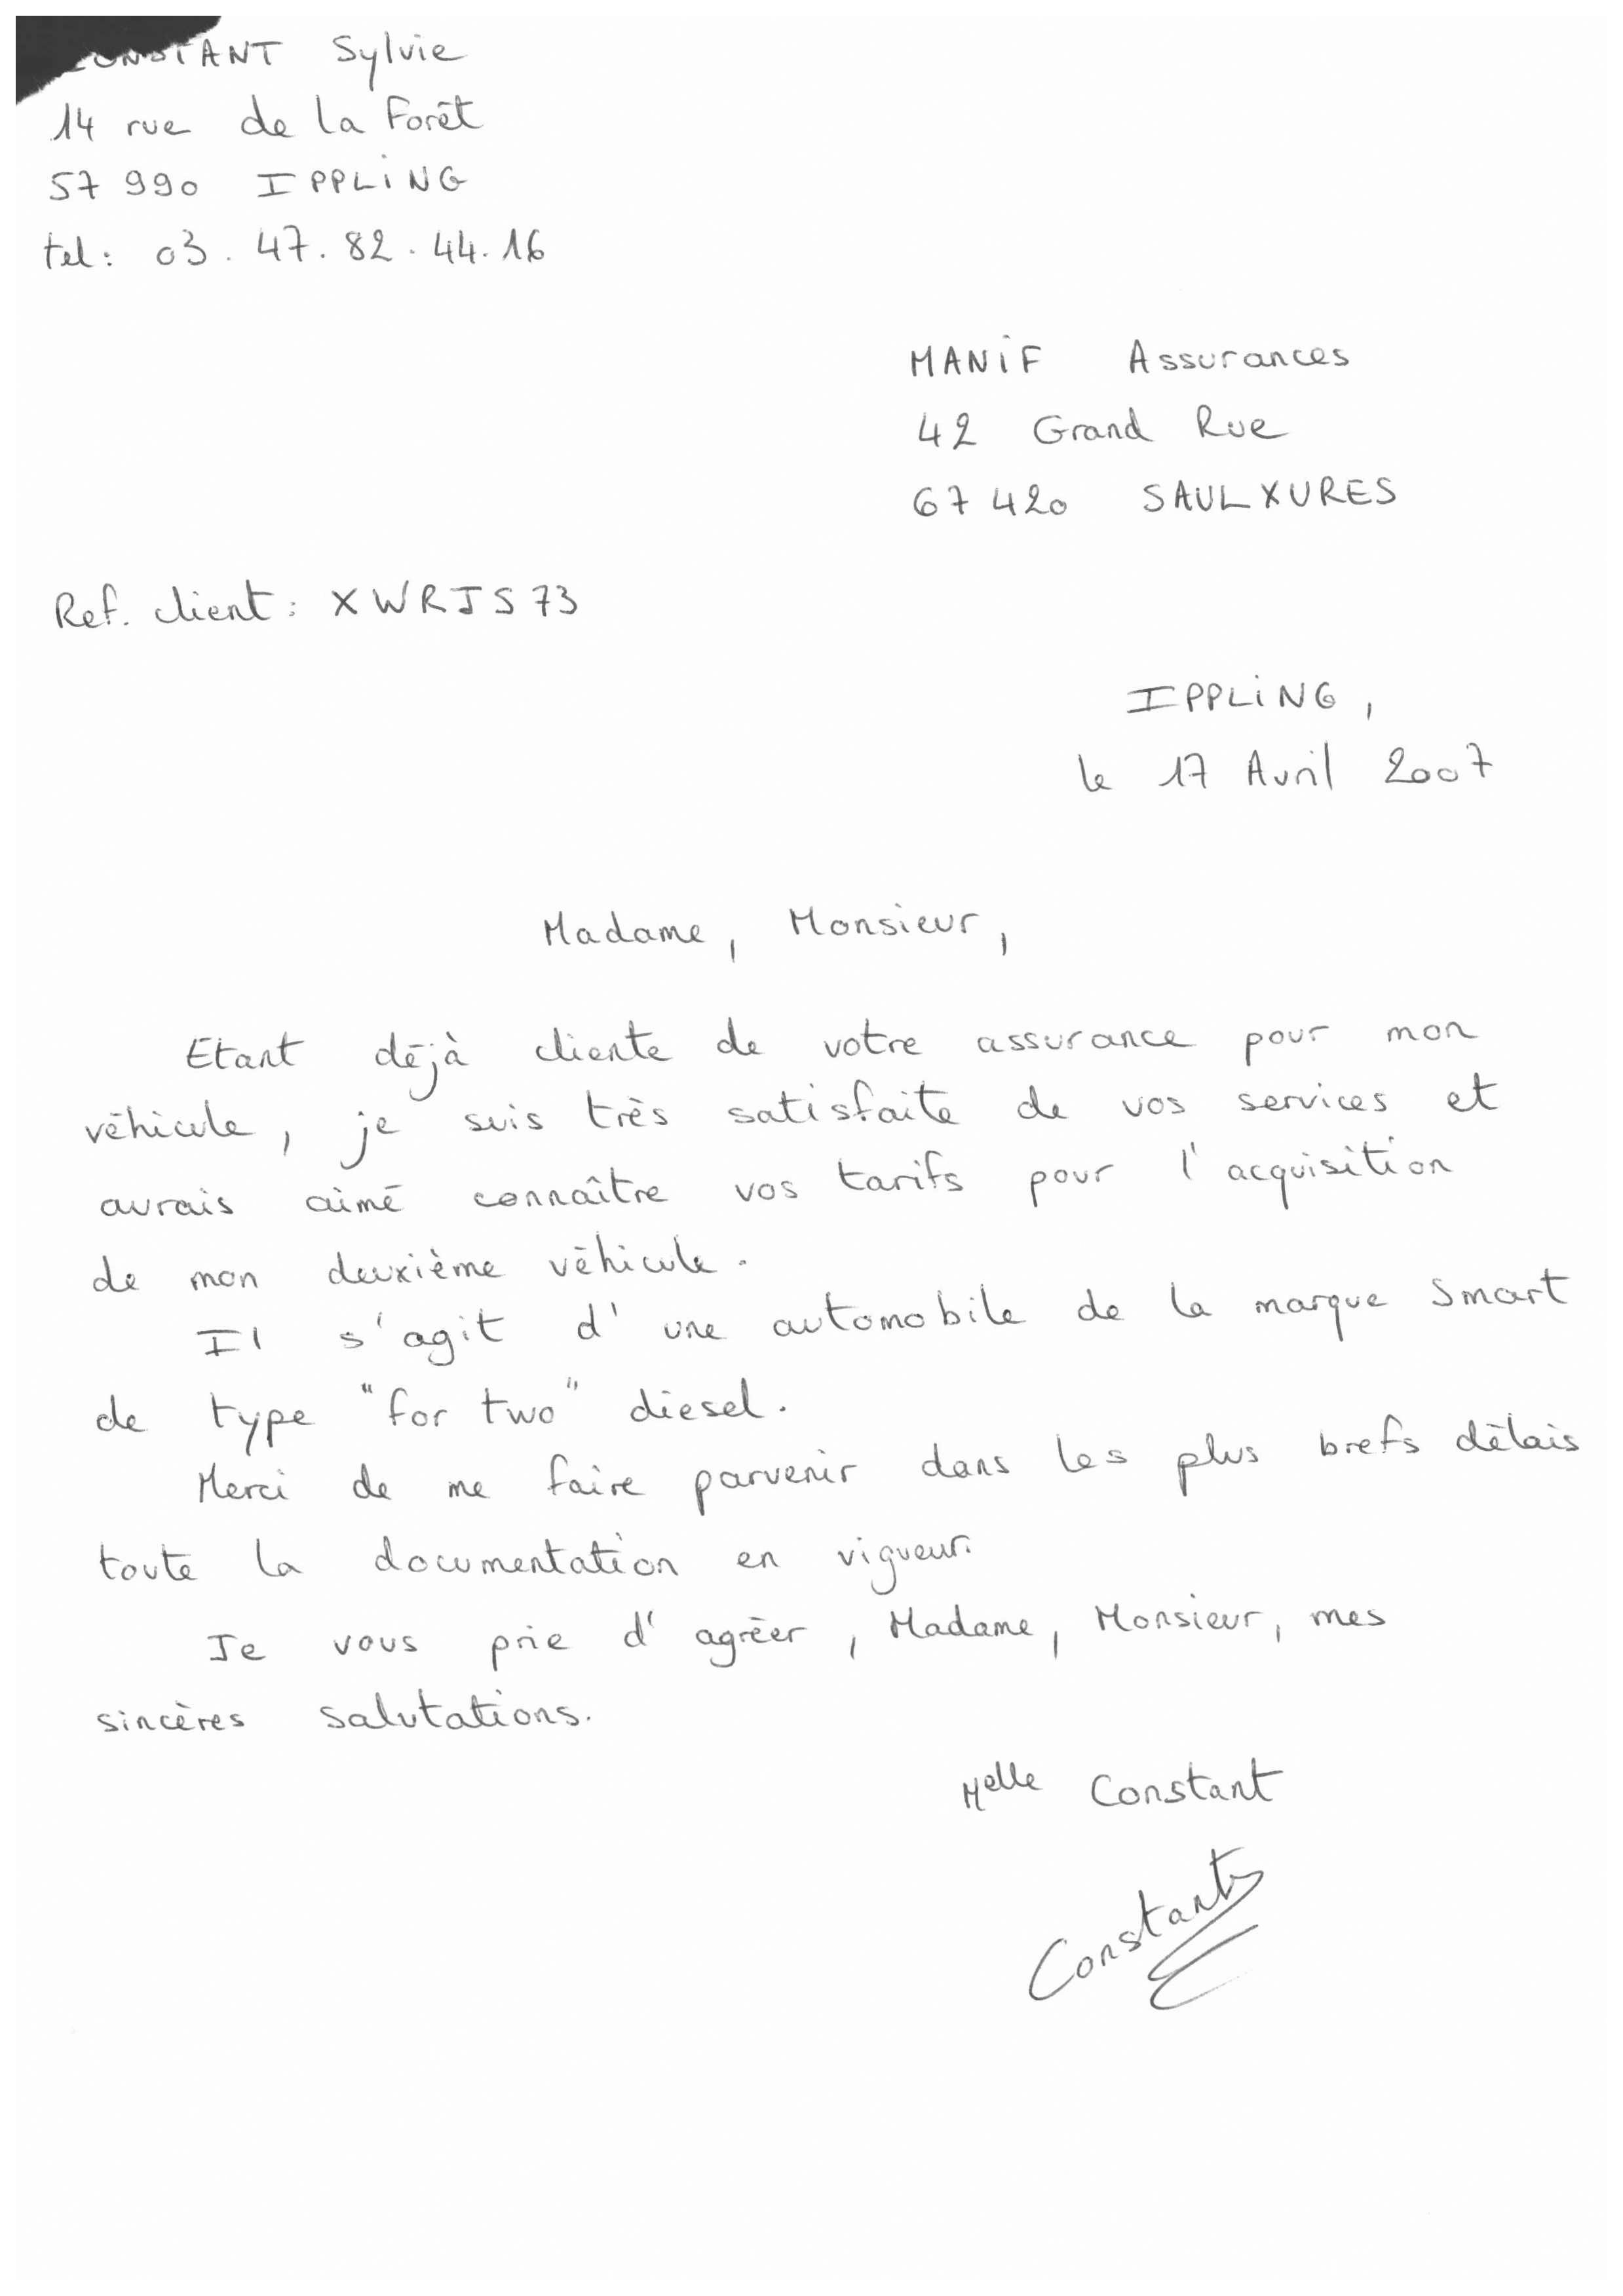 CONSTANT Sylvie
14 rue de la Forêt
57 990 IPPLING
tel: 03. 47. 82. 44. 16
MANIF Assurances
42 Grand Rue
67 420 SAULXURES
Ref. client: XWRJS73
IPPLING,
le 17 Avril 2007
Madame, Monsieur,
Etant déjà cliente de votre assurance pour mon
véhicule, je suis très satisfaite de vos services et
aurais aimé connaître vos tarifs pour l'acquisition
de mon deuxième véhicule.
Il s'agit d'une automobile de la marque Smart
de type "for two" diesel.
Merci de me faire parvenir dans les plus brefs délais
toute la documentation en vigueur.
Je vous prie d'agréer, Madame, Monsieur, mes
sincères salutations.
Melle Constant
Constant